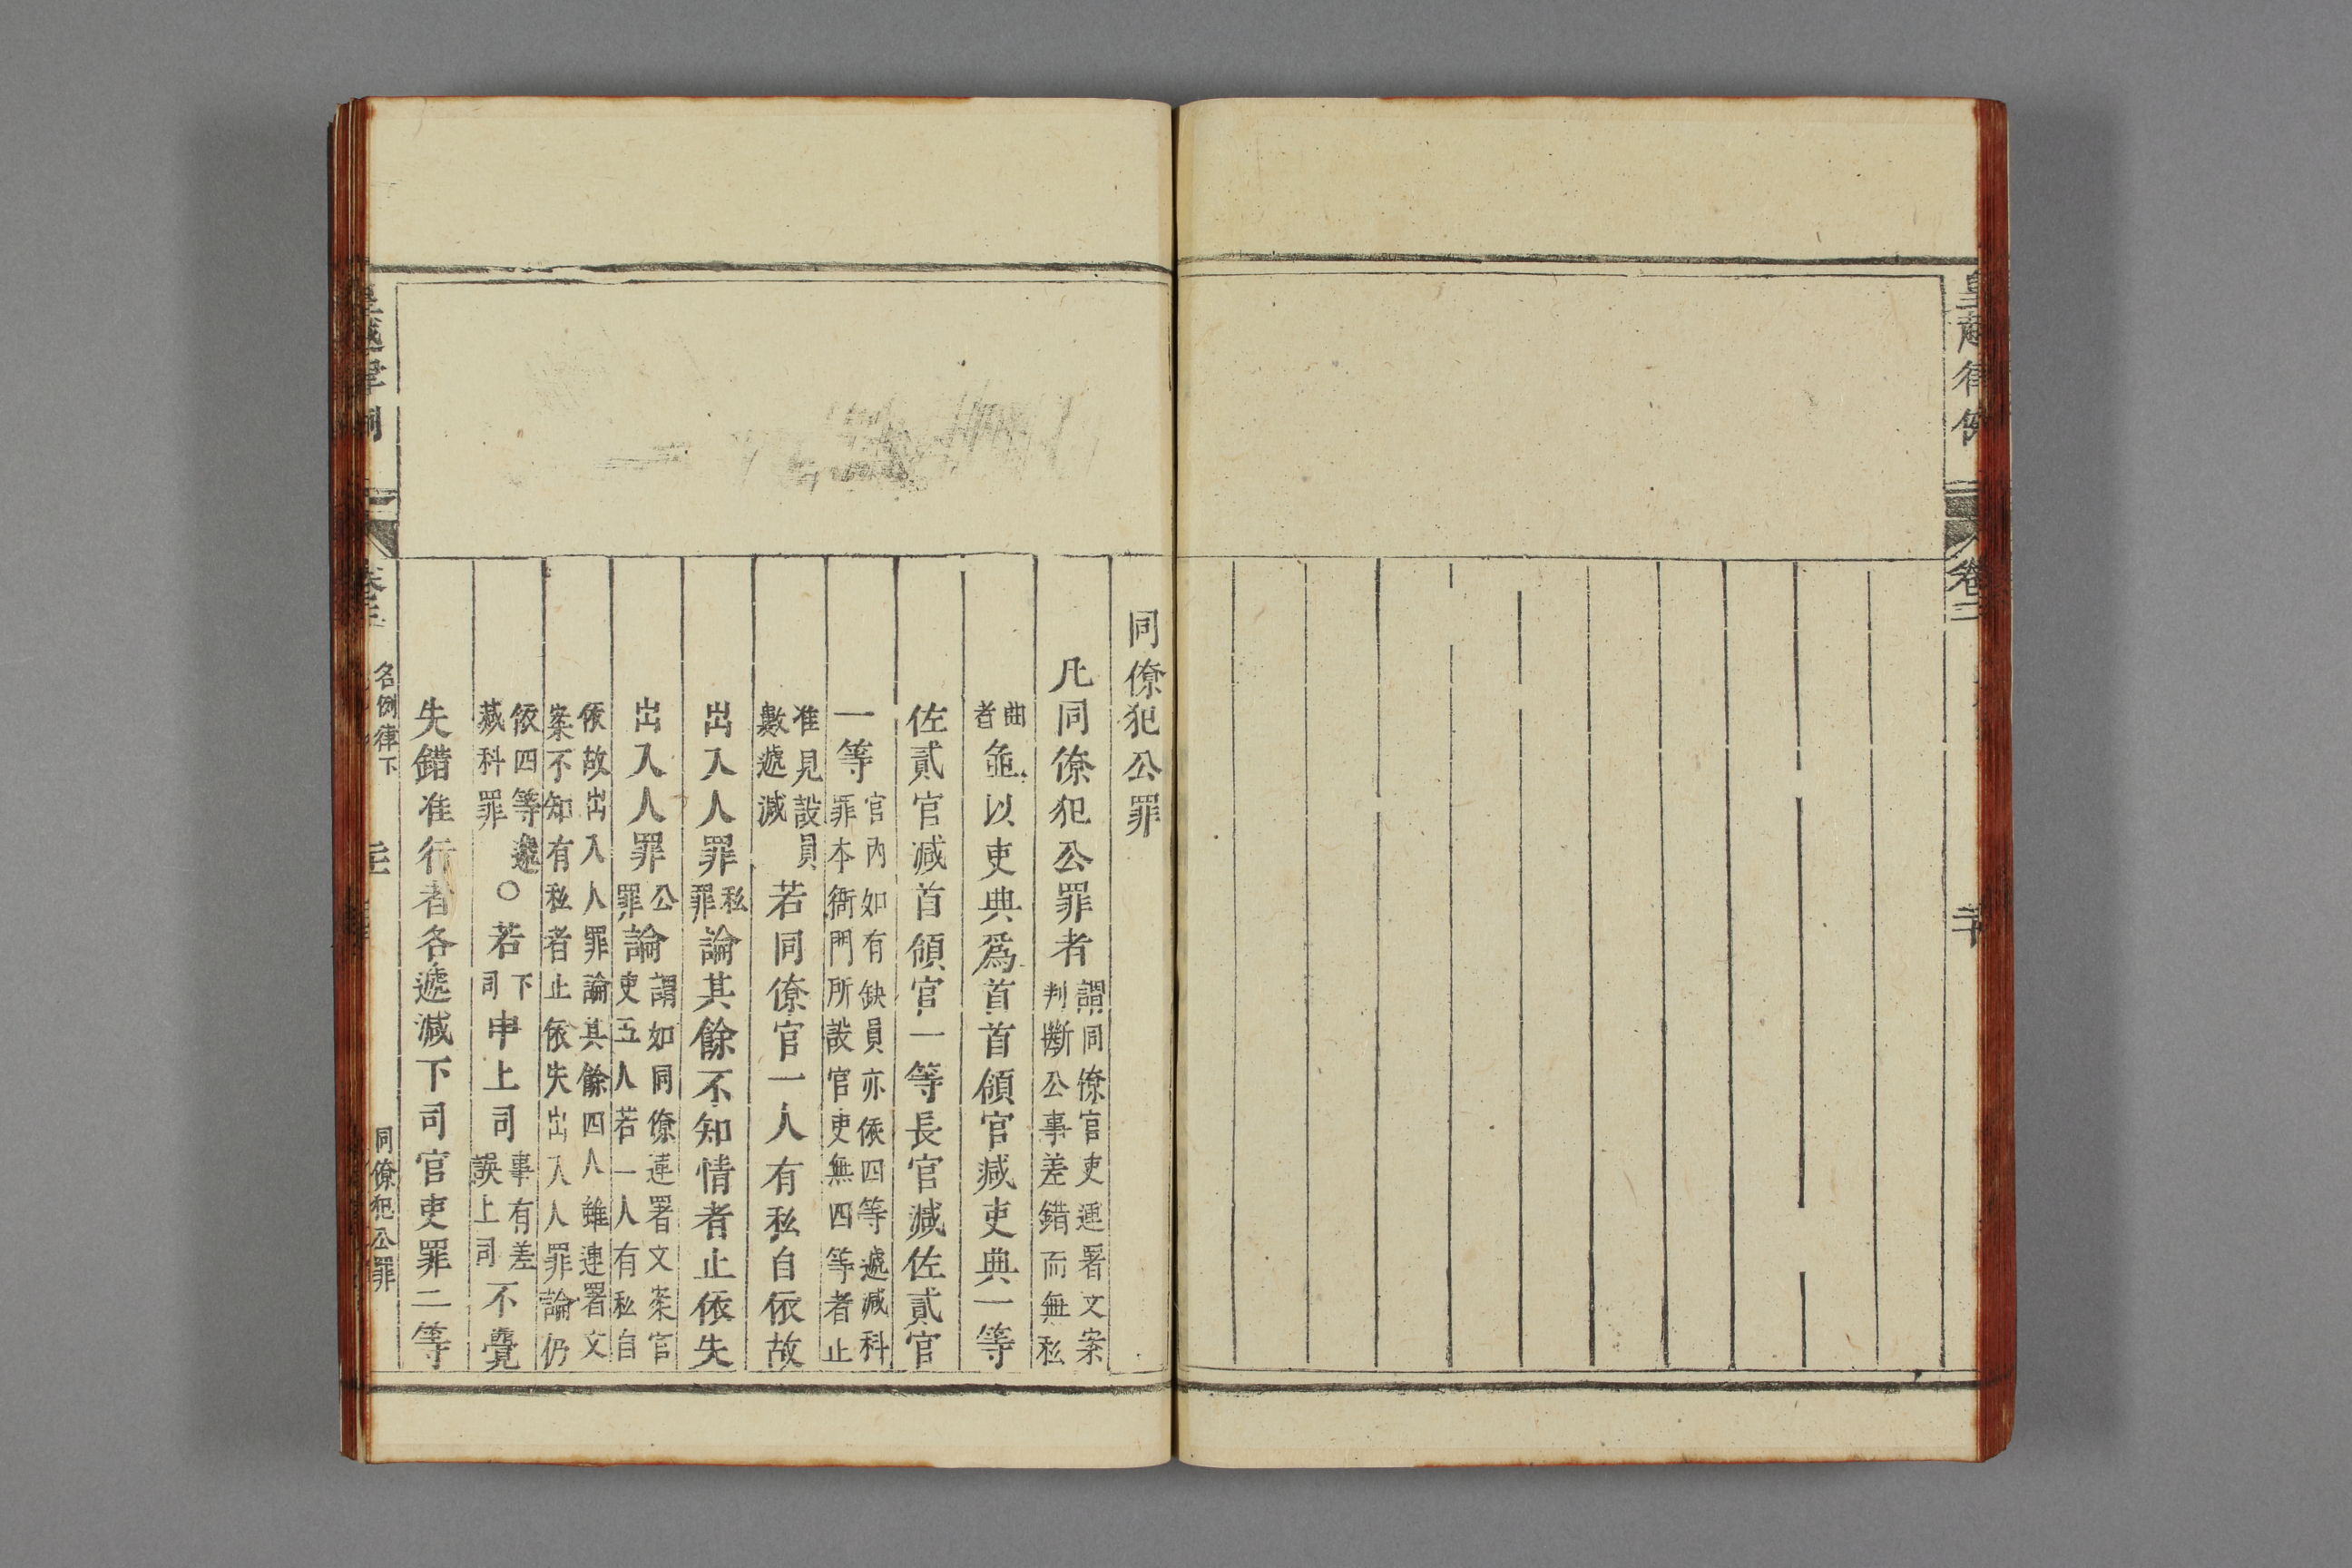 皇越律例
卷二
同僚犯公罪
凡同僚犯公罪者謂同僚官吏連署文案判斷公事差錯而無私
曲者並以吏典爲首首領官減吏典一等
佐貳官減首領官一等長官減佐貳官
一等官內如有缺員亦依四等遞減科罪本衙門所設官吏無四等者止
准見設員數遞減若同僚官一人有私自依故
出入人罪私罪論其餘不知情者止依失
出入人罪公罪論謂如同僚連署文案官吏五人若一人有私自
依故出入人罪論其餘四人雖連署文案不知有私者止依失出入人罪論仍
依四等遞減科罪〇若下司申上司事有差誤上司不覺
失錯准行者各遞減下司官吏罪二等
皇越律例
名例律下
同僚犯公罪